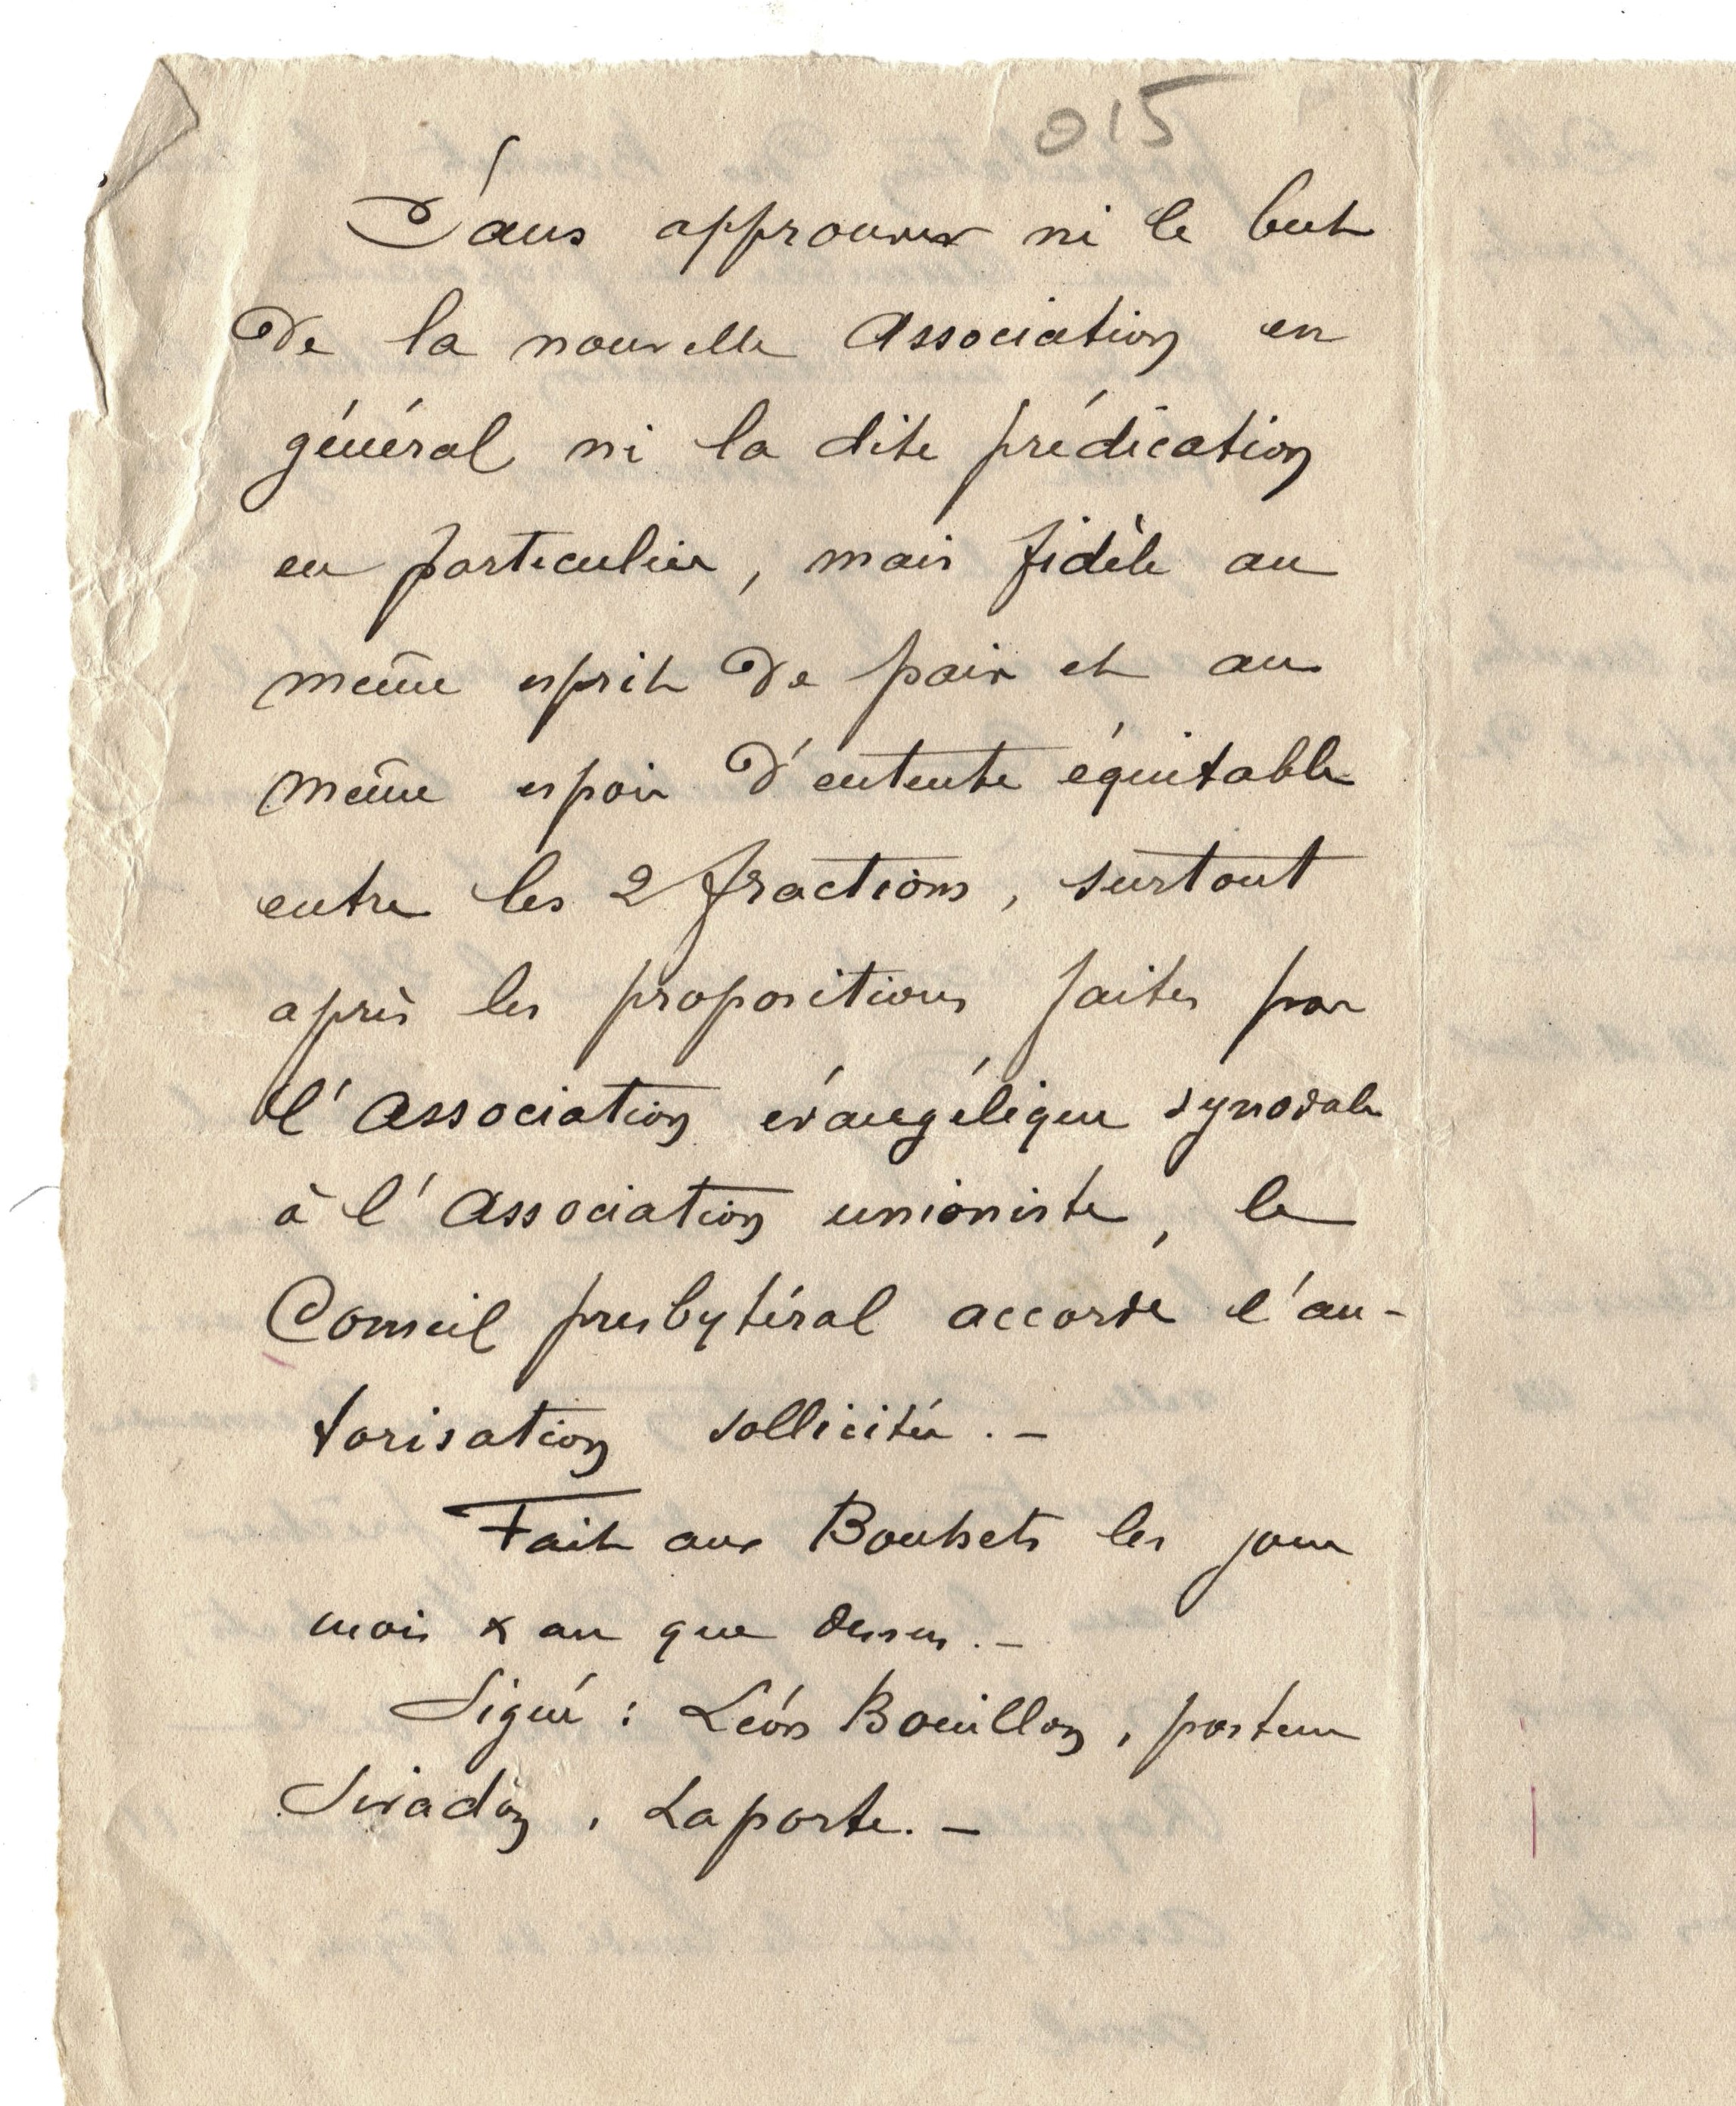 015
Sans approuver ni le but
de la nouvelle Association en
général ni la dite prédication
en particulier, mais fidèle au
même esprit de paix et au
même espoir d'entente équitable
entre les 2 fractions, surtout
après les propositions faites par
l'Association évangélique synodale
à l'Association unioniste, le
Conseil presbytéral accorde l'au-
torisation sollicitée. –
Fait aux Bouhets les jour
mois & an que dessus. –
Signé : Léon Bouillon, pasteur
Siradon, Laporte. –